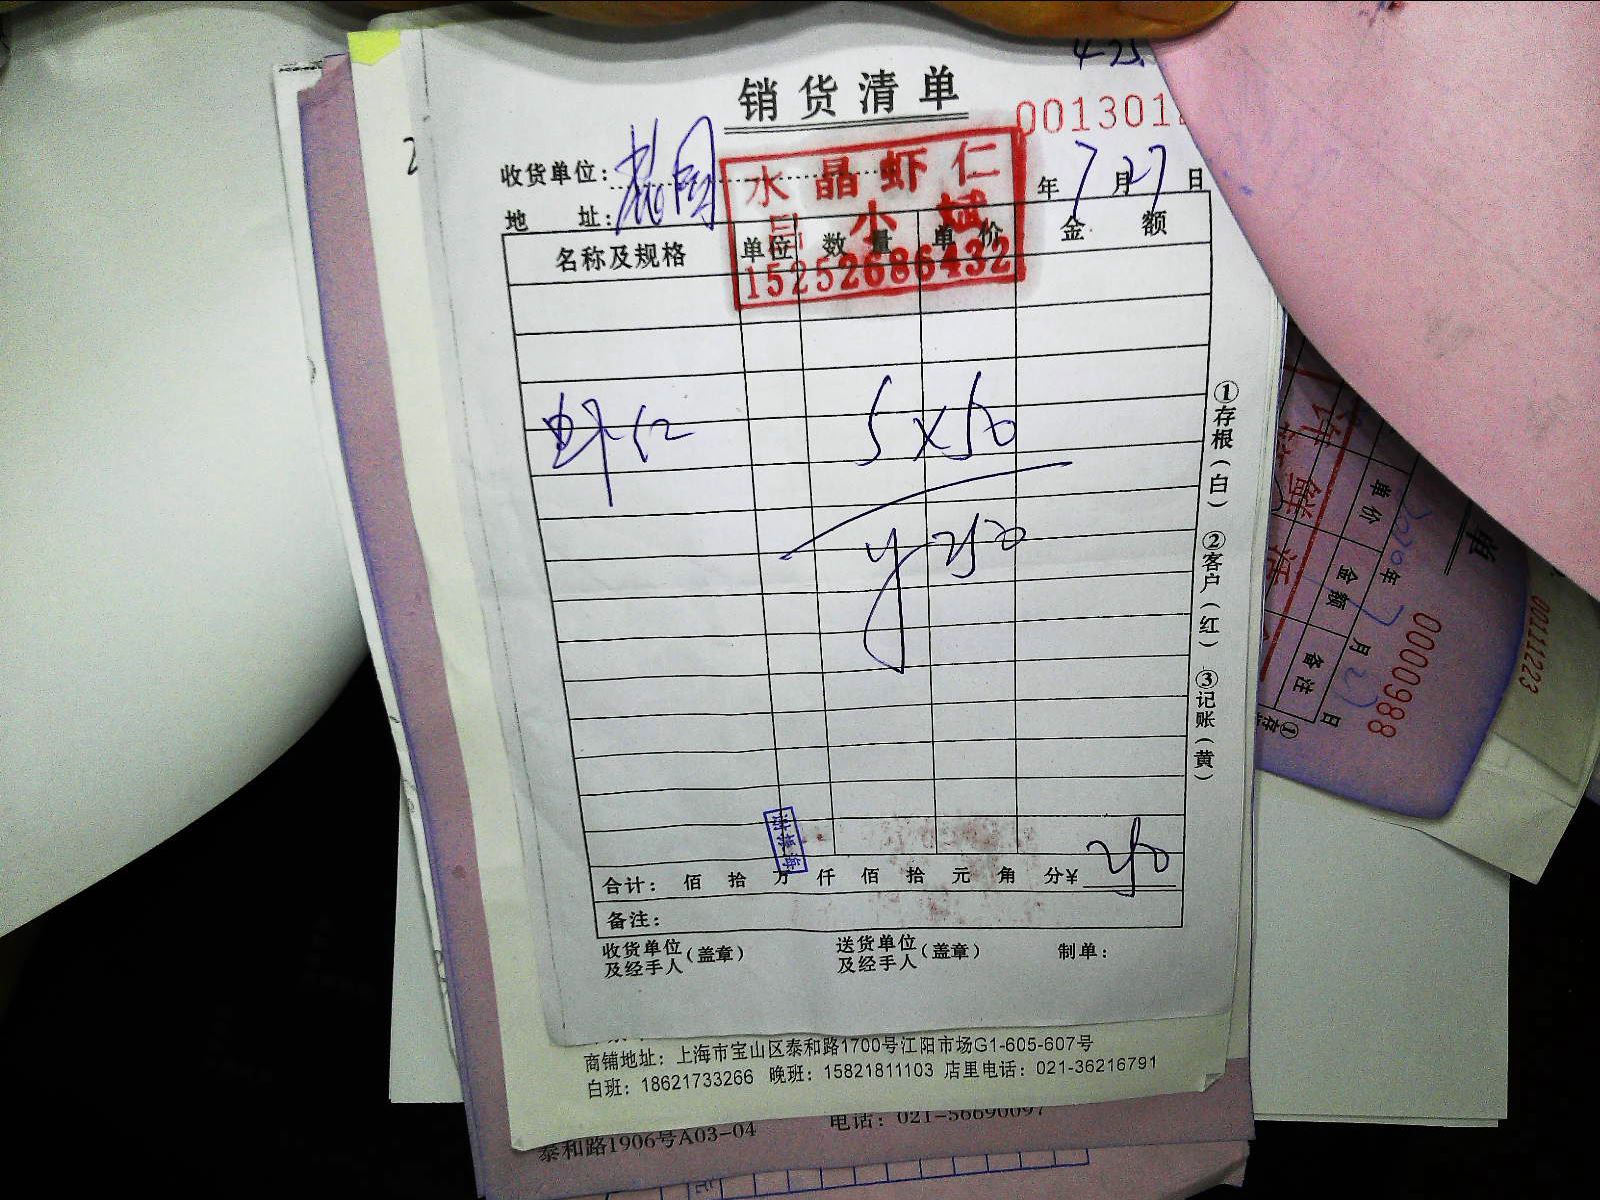 425.
销货清单
001301
收货单位：
水晶虾仁
年7月27日
地 址：
吕小斌
名称及规格 单位 数量 单价 金额
15252686432
虾仁 5×50
¥250
①存根(白) ②客户(红) ③记账(黄)
合计： 佰 拾 万 仟 佰 拾 元 角 分¥ 250
备注：
收货单位及经手人(盖章) 送货单位及经手人(盖章) 制单：
商铺地址：上海市宝山区泰和路1700号江阳市场G1-605-607号
白班：18621733266 晚班：15821811103 店里电话：021-36216791
泰和路1906号A03-04 电话：021-56690097
单
年7月21日
单价 金额 备注
0000988
00111223
鲜活